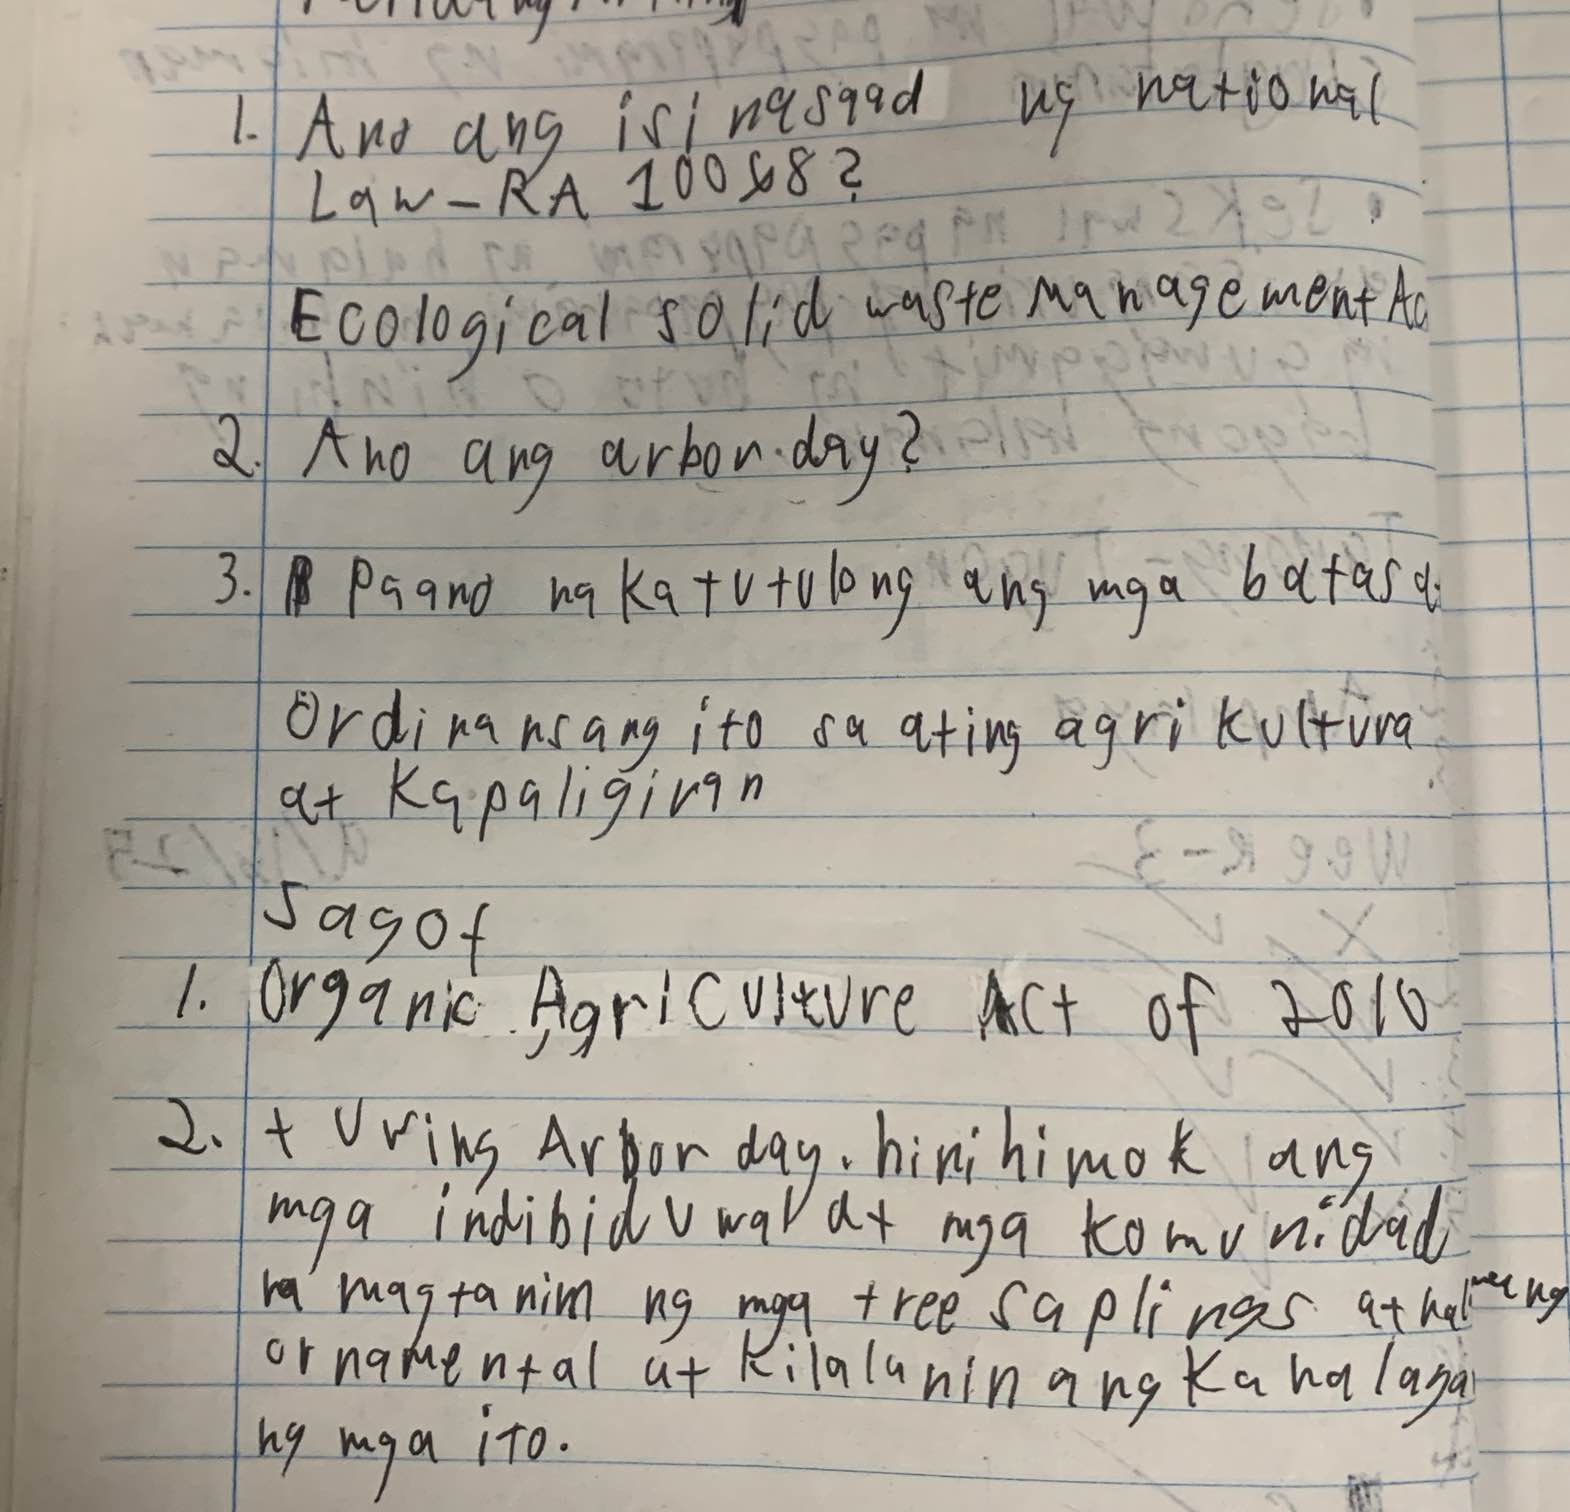 1. Ano ang isinasaad ng national
Law-RA 10068?
Ecological solid waste Management Ac
2. Ano ang arbor day?
3. Paano nakatutulong ang mga batasa
Ordinansang ito sa ating agrikultura
at Kapaligiran
Sagot
1. Organic Agriculture Act of 2010
2. tuwing Arbor day. hinihimok ang
mga indibiduwal at mga komunidad
na magtanim ng mga tree saplings at
ornamental at Kilalanin ang Kahalaga
ng mga ito.